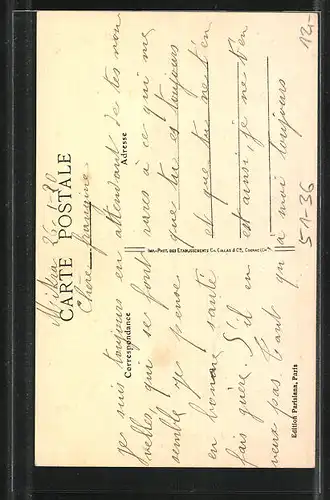 26-1-30
CARTE POSTALE
Chère frangine
Correspondance
Adresse
je suis toujours en attendant de tes nou
velles, qui se font rares à ce qui me
semble je pense que tu es toujours
en bonne santé et que tu ne t'en
fais guère. S'il en est ainsi, je ne t'en
veux pas tant qu'à moi toujours
IMP.-PHOT. DES ETABLISSEMENTS CH. COLLAS & CIE, COGNAC
Edition Parisiana, Paris
12,-
51-36